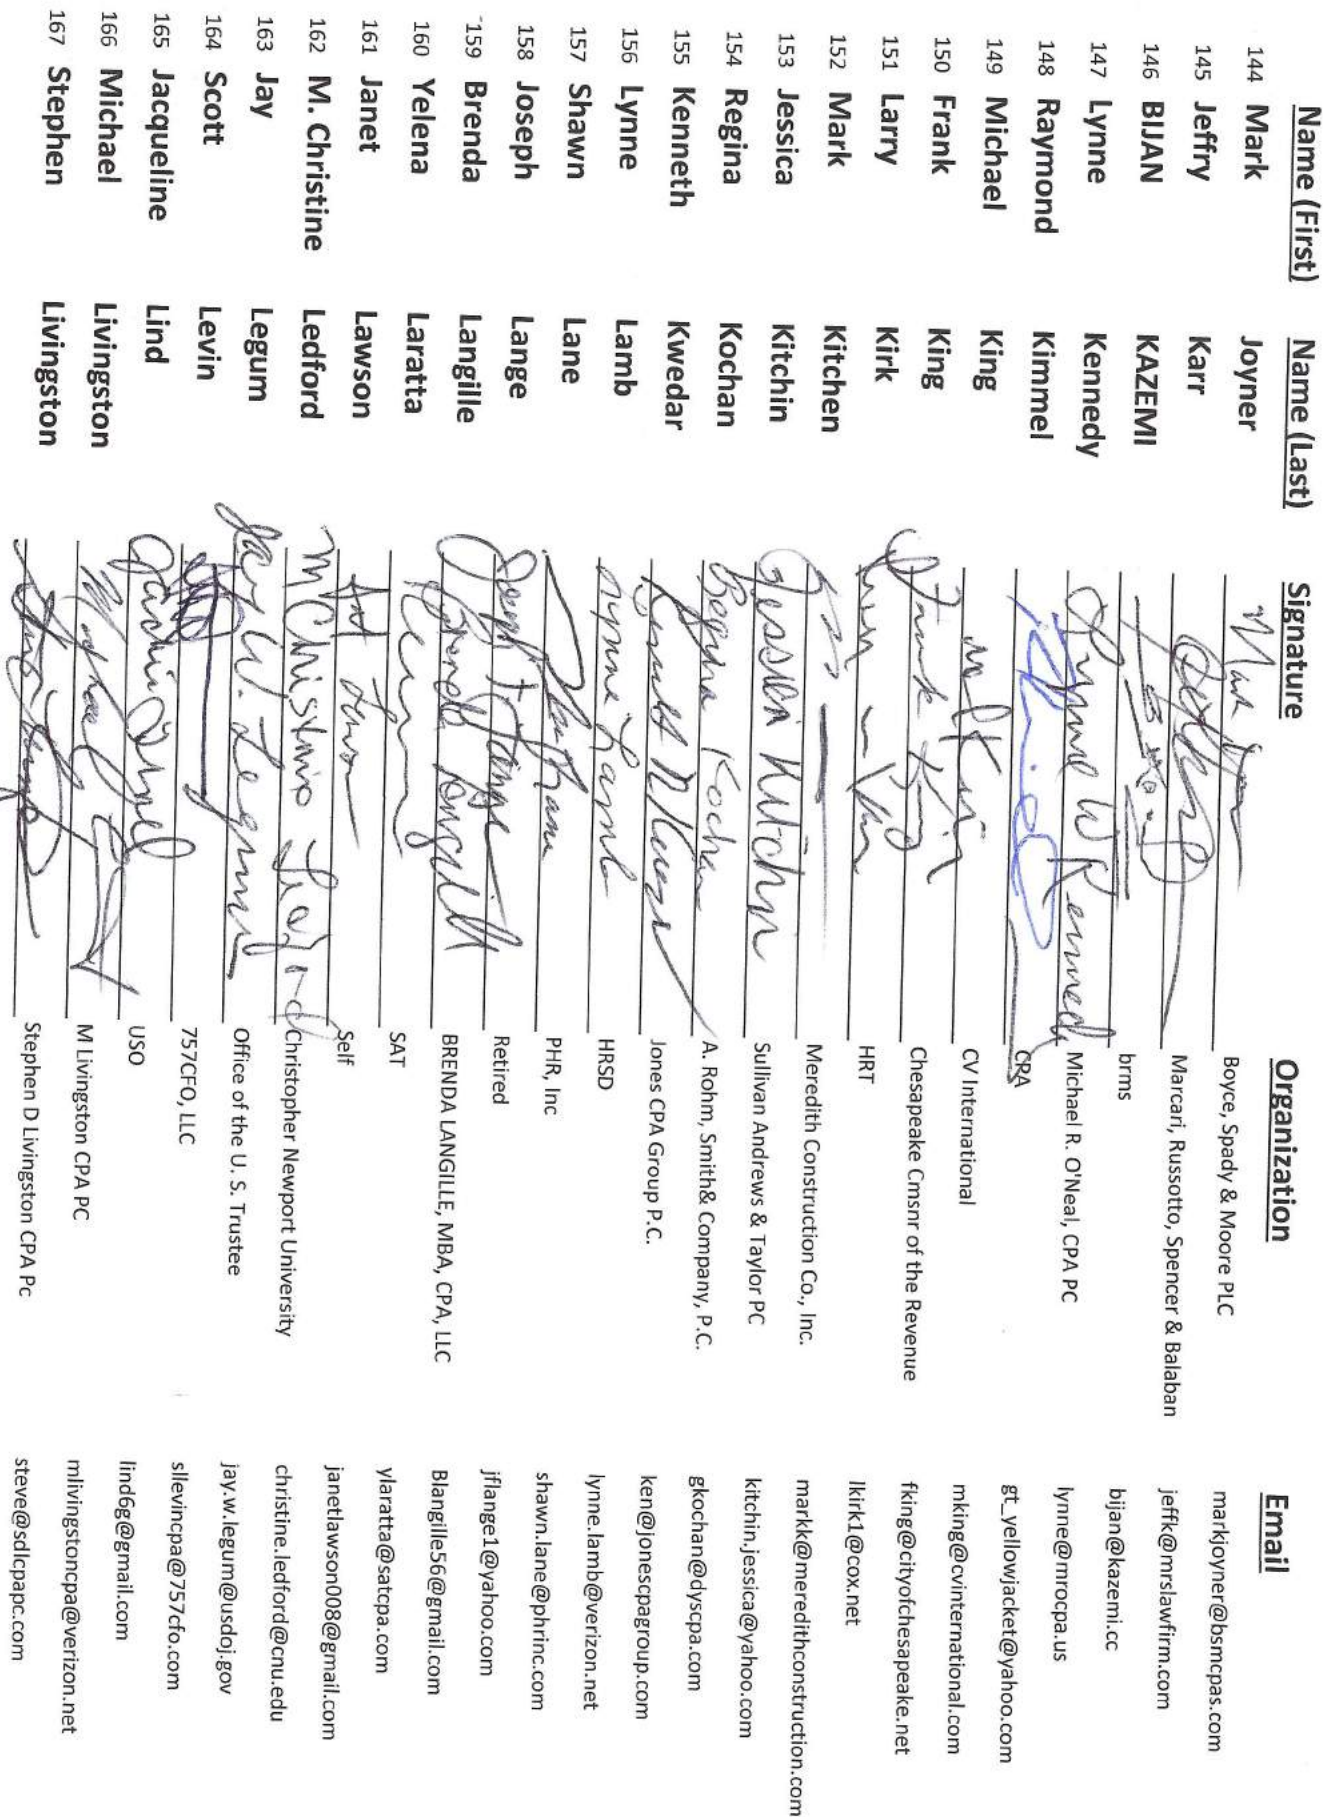 Name (First) Name (Last) Signature Organization Email
144 Mark Joyner Mark Boyce, Spady & Moore PLC markjoyner@bsmcpas.com
145 Jeffry Karr Marcari, Russotto, Spencer & Balaban jeffk@mrslawfirm.com
146 BIJAN KAZEMI brms bijan@kazemi.cc
147 Lynne Kennedy Lynne W Kennedy Michael R. O'Neal, CPA PC lynne@mrocpa.us
148 Raymond Kimmel CPA gt_yellowjacket@yahoo.com
149 Michael King CV International mking@cvinternational.com
150 Frank King Frank King Chesapeake Cmsnr of the Revenue fking@cityofchesapeake.net
151 Larry Kirk HRT lkirk1@cox.net
152 Mark Kitchen Meredith Construction Co., Inc. markk@meredithconstruction.com
153 Jessica Kitchin Jessica Kitchin Sullivan Andrews & Taylor PC kitchin.jessica@yahoo.com
154 Regina Kochan Regina Kochan A. Rohm, Smith& Company, P.C. gkochan@dyscpa.com
155 Kenneth Kwedar Jones CPA Group P.C. ken@jonescpagroup.com
156 Lynne Lamb Lynne Lamb HRSD lynne.lamb@verizon.net
157 Shawn Lane PHR, Inc shawn.lane@phrinc.com
158 Joseph Lange Joseph F Lange Retired jflange1@yahoo.com
159 Brenda Langille Brenda Langille BRENDA LANGILLE, MBA, CPA, LLC Blangille56@gmail.com
160 Yelena Laratta SAT ylaratta@satcpa.com
161 Janet Lawson Self janetlawson008@gmail.com
162 M. Christine Ledford M Christine Ledford Christopher Newport University christine.ledford@cnu.edu
163 Jay Legum Jay W. Legum Office of the U. S. Trustee jay.w.legum@usdoj.gov
164 Scott Levin 757CFO, LLC sllevincpa@757cfo.com
165 Jacqueline Lind USO lind6g@gmail.com
166 Michael Livingston M Livingston CPA PC mlivingstoncpa@verizon.net
167 Stephen Livingston Stephen D Livingston CPA Pc steve@sdlcpapc.com